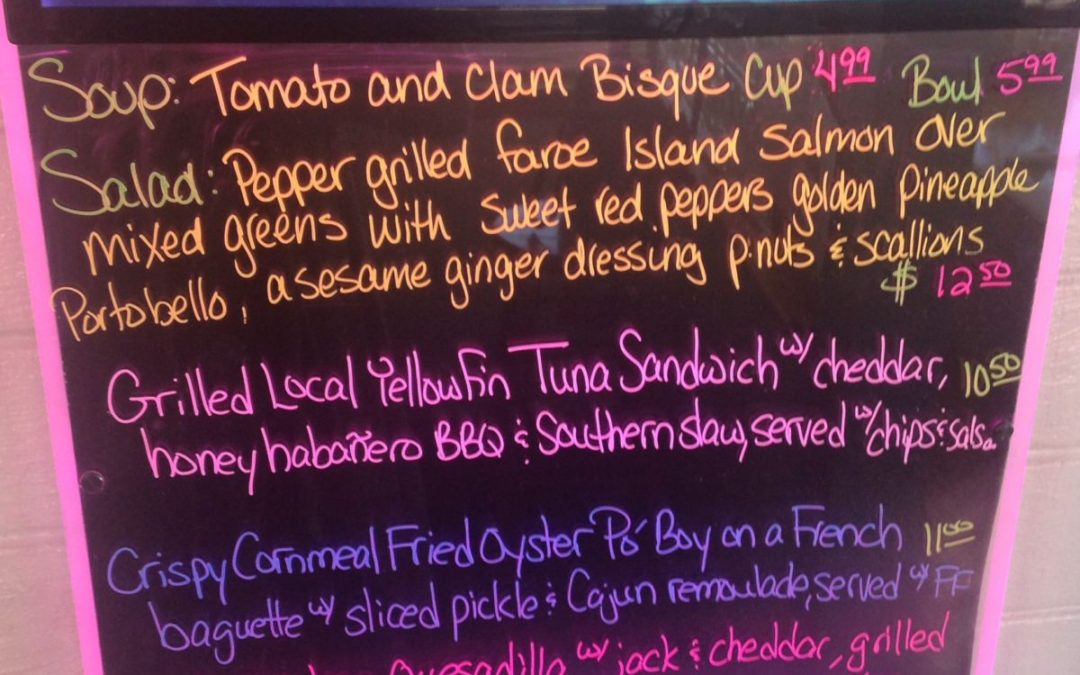 Soup: Tomato and Clam Bisque Cup 4.99 Bowl 5.99
Salad: Pepper grilled faroe Island Salmon over
mixed greens with sweet red peppers golden pineapple
Portobello, a sesame ginger dressing p.nuts & scallions
$ 12.50
Grilled Local Yellowfin Tuna Sandwich w/ cheddar, 10.50
honey habañero BBQ & Southern slaw, served w/chips & salsa
Crispy Cornmeal Fried Oyster Po' Boy on a French 11.00
baguette w/ sliced pickle & Cajun remoulade, served w/ FF
Quesadilla w/ jack & cheddar, grilled